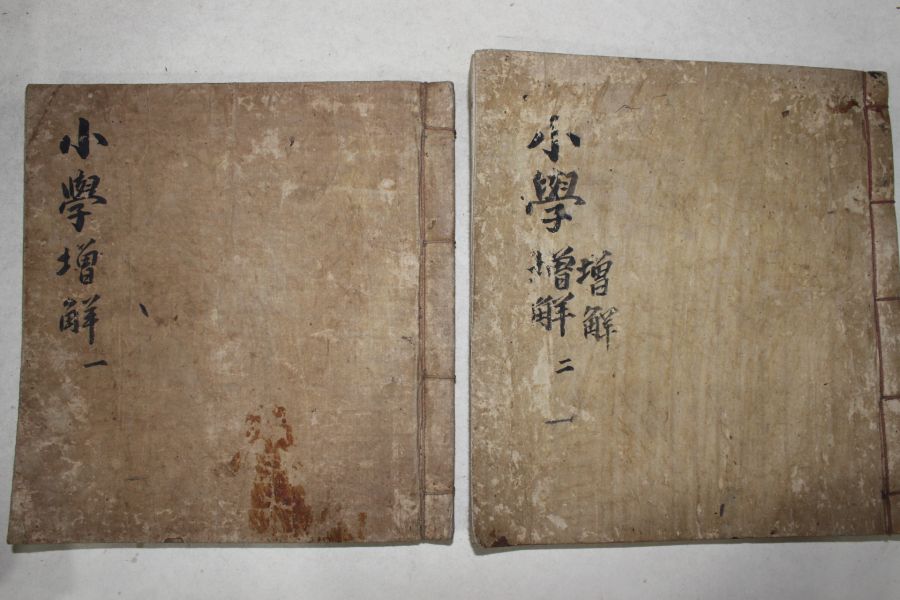 小學增解
一
小學增解
增解
二
一